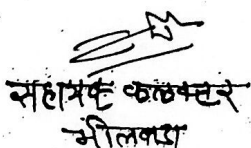 सहायक कलक्टर
भीलवाडा